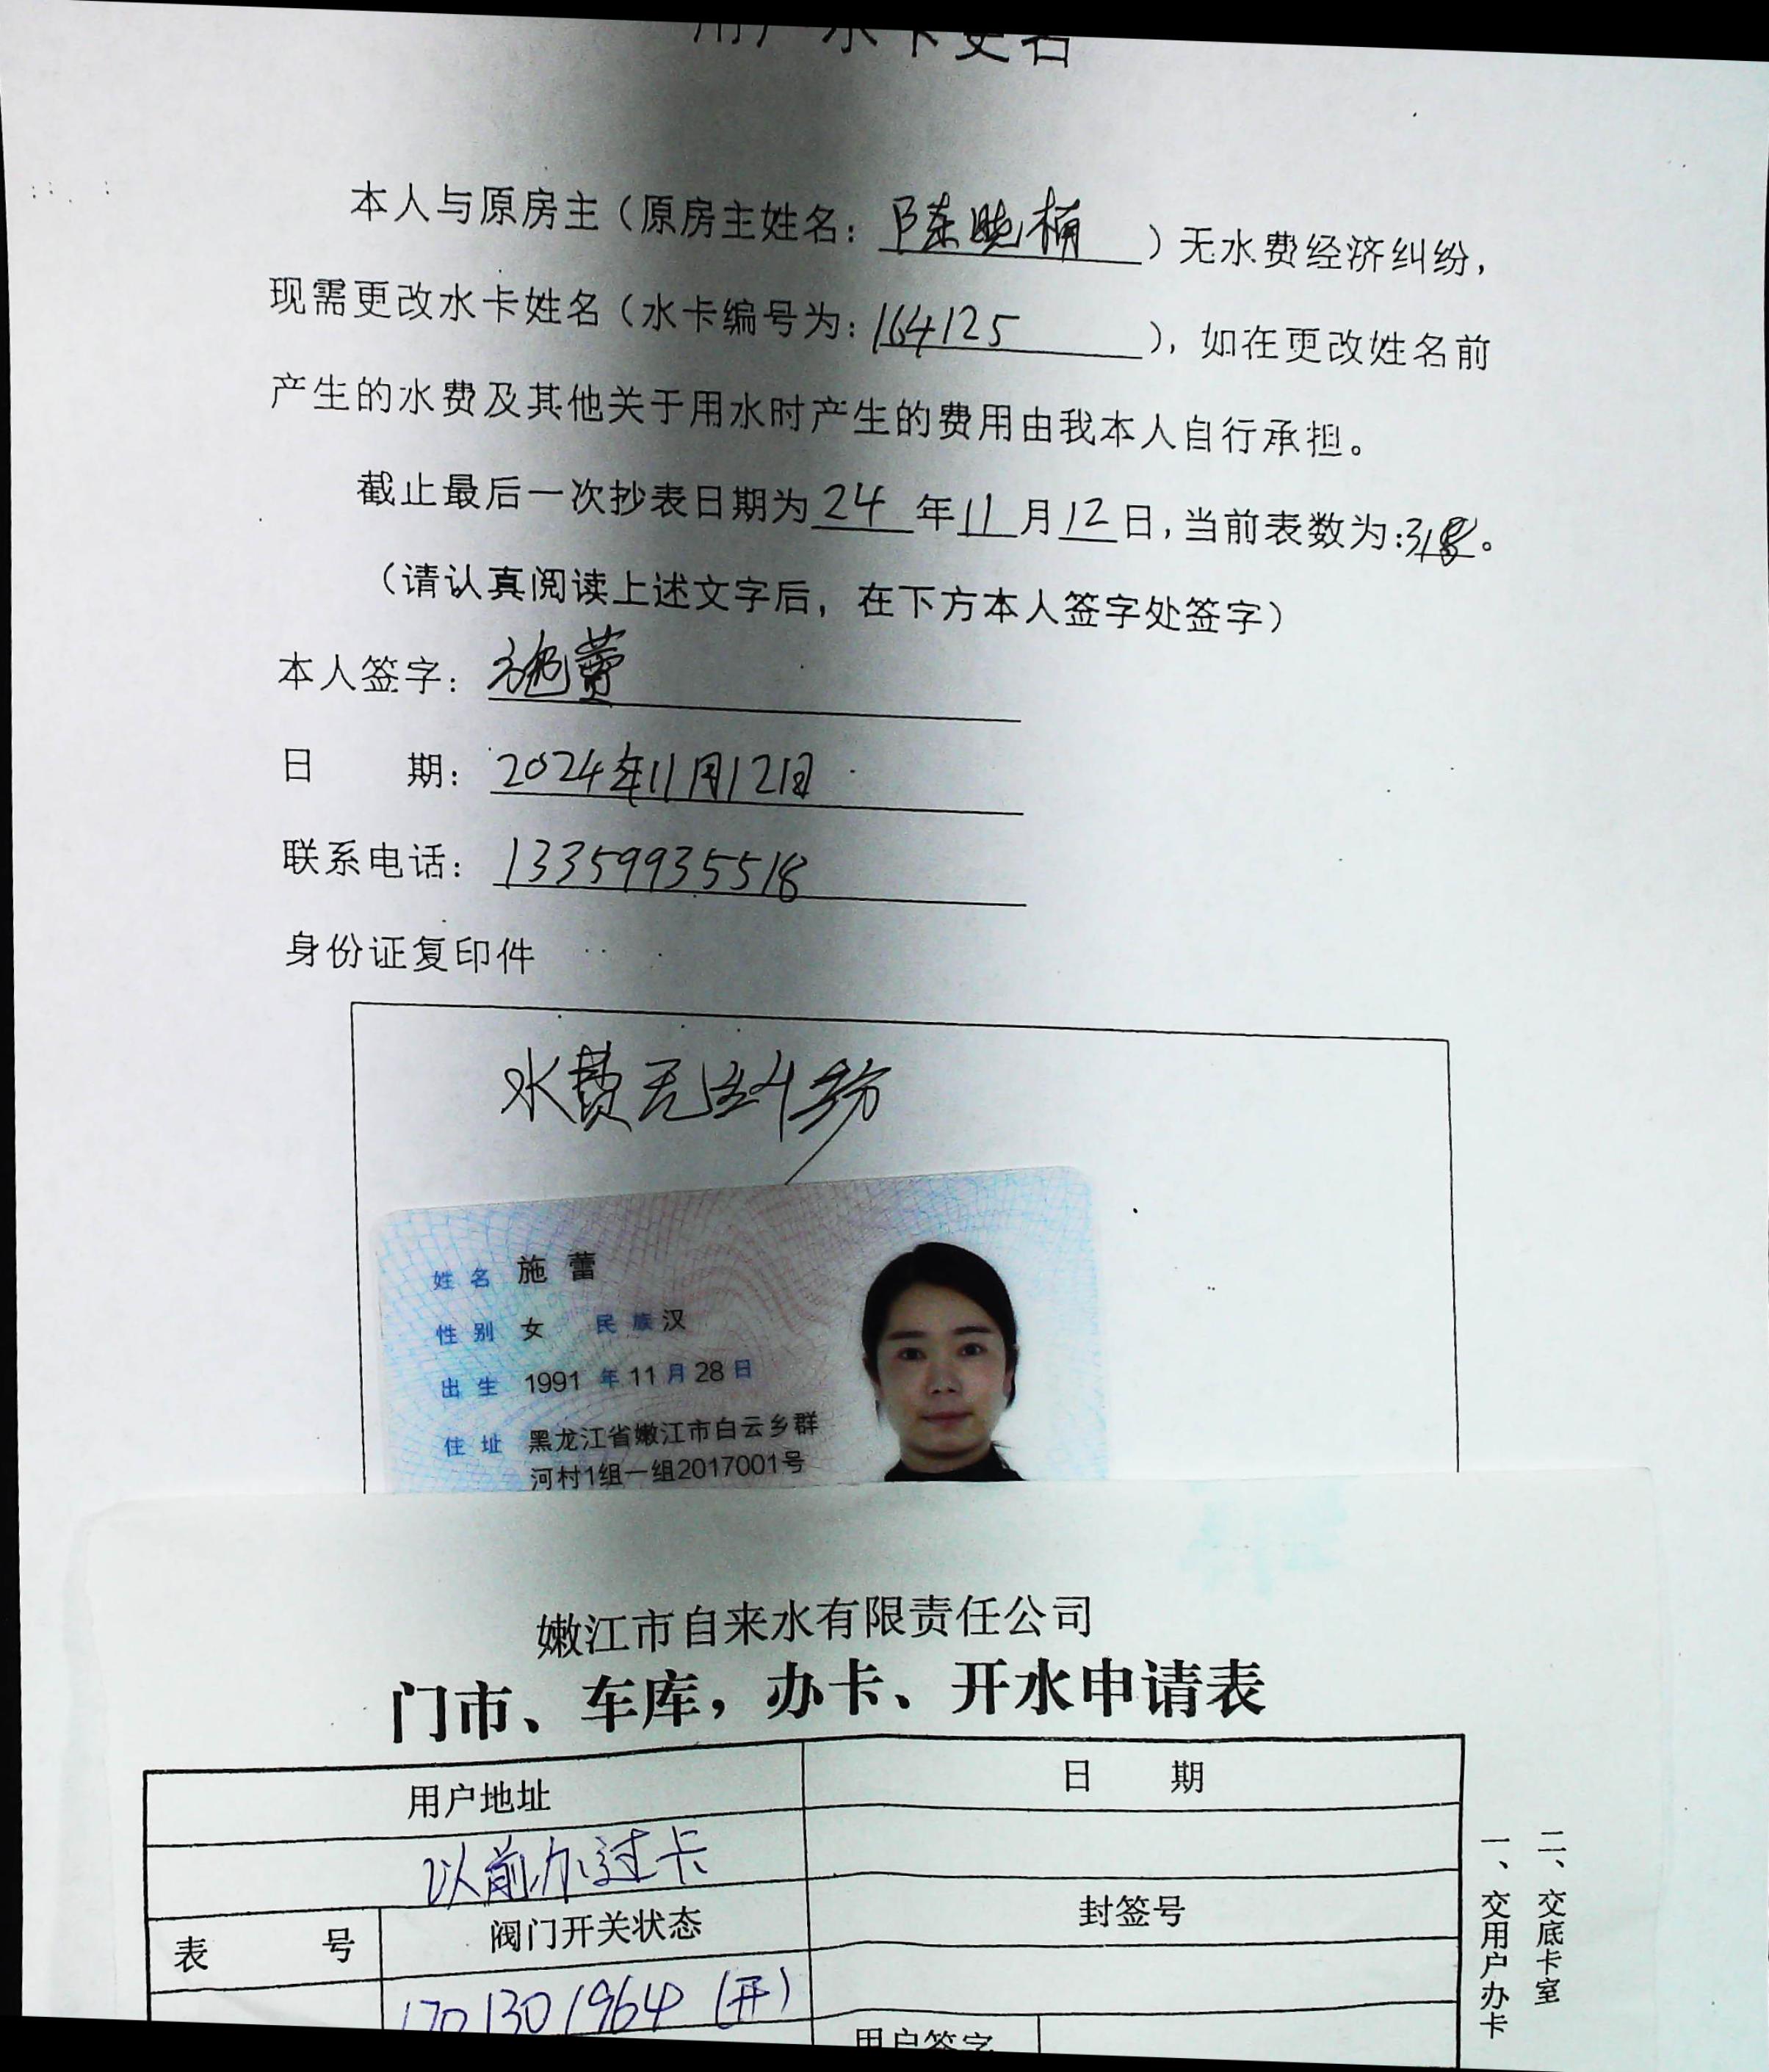 用户水卡更名
本人与原房主（原房主姓名：陈晓楠）无水费经济纠纷，
现需更改水卡姓名（水卡编号为：164125），如在更改姓名前
产生的水费及其他关于用水时产生的费用由我本人自行承担。
截止最后一次抄表日期为24年11月12日，当前表数为：318。
（请认真阅读上述文字后，在下方本人签字处签字）
本人签字：施蕾
日 期：2024年11月12日
联系电话：13359935518
身份证复印件
水费无纠纷
姓名 施蕾
性别 女 民族 汉
出生 1991年11月28日
住址 黑龙江省嫩江市白云乡群
河村1组一组2017001号
嫩江市自来水有限责任公司
门市、车库，办卡、开水申请表
用户地址 日 期
以前办过卡
表 号 阀门开关状态 封签号
1701301964（开）
用户签字
一、交用户办卡
二、交底卡室